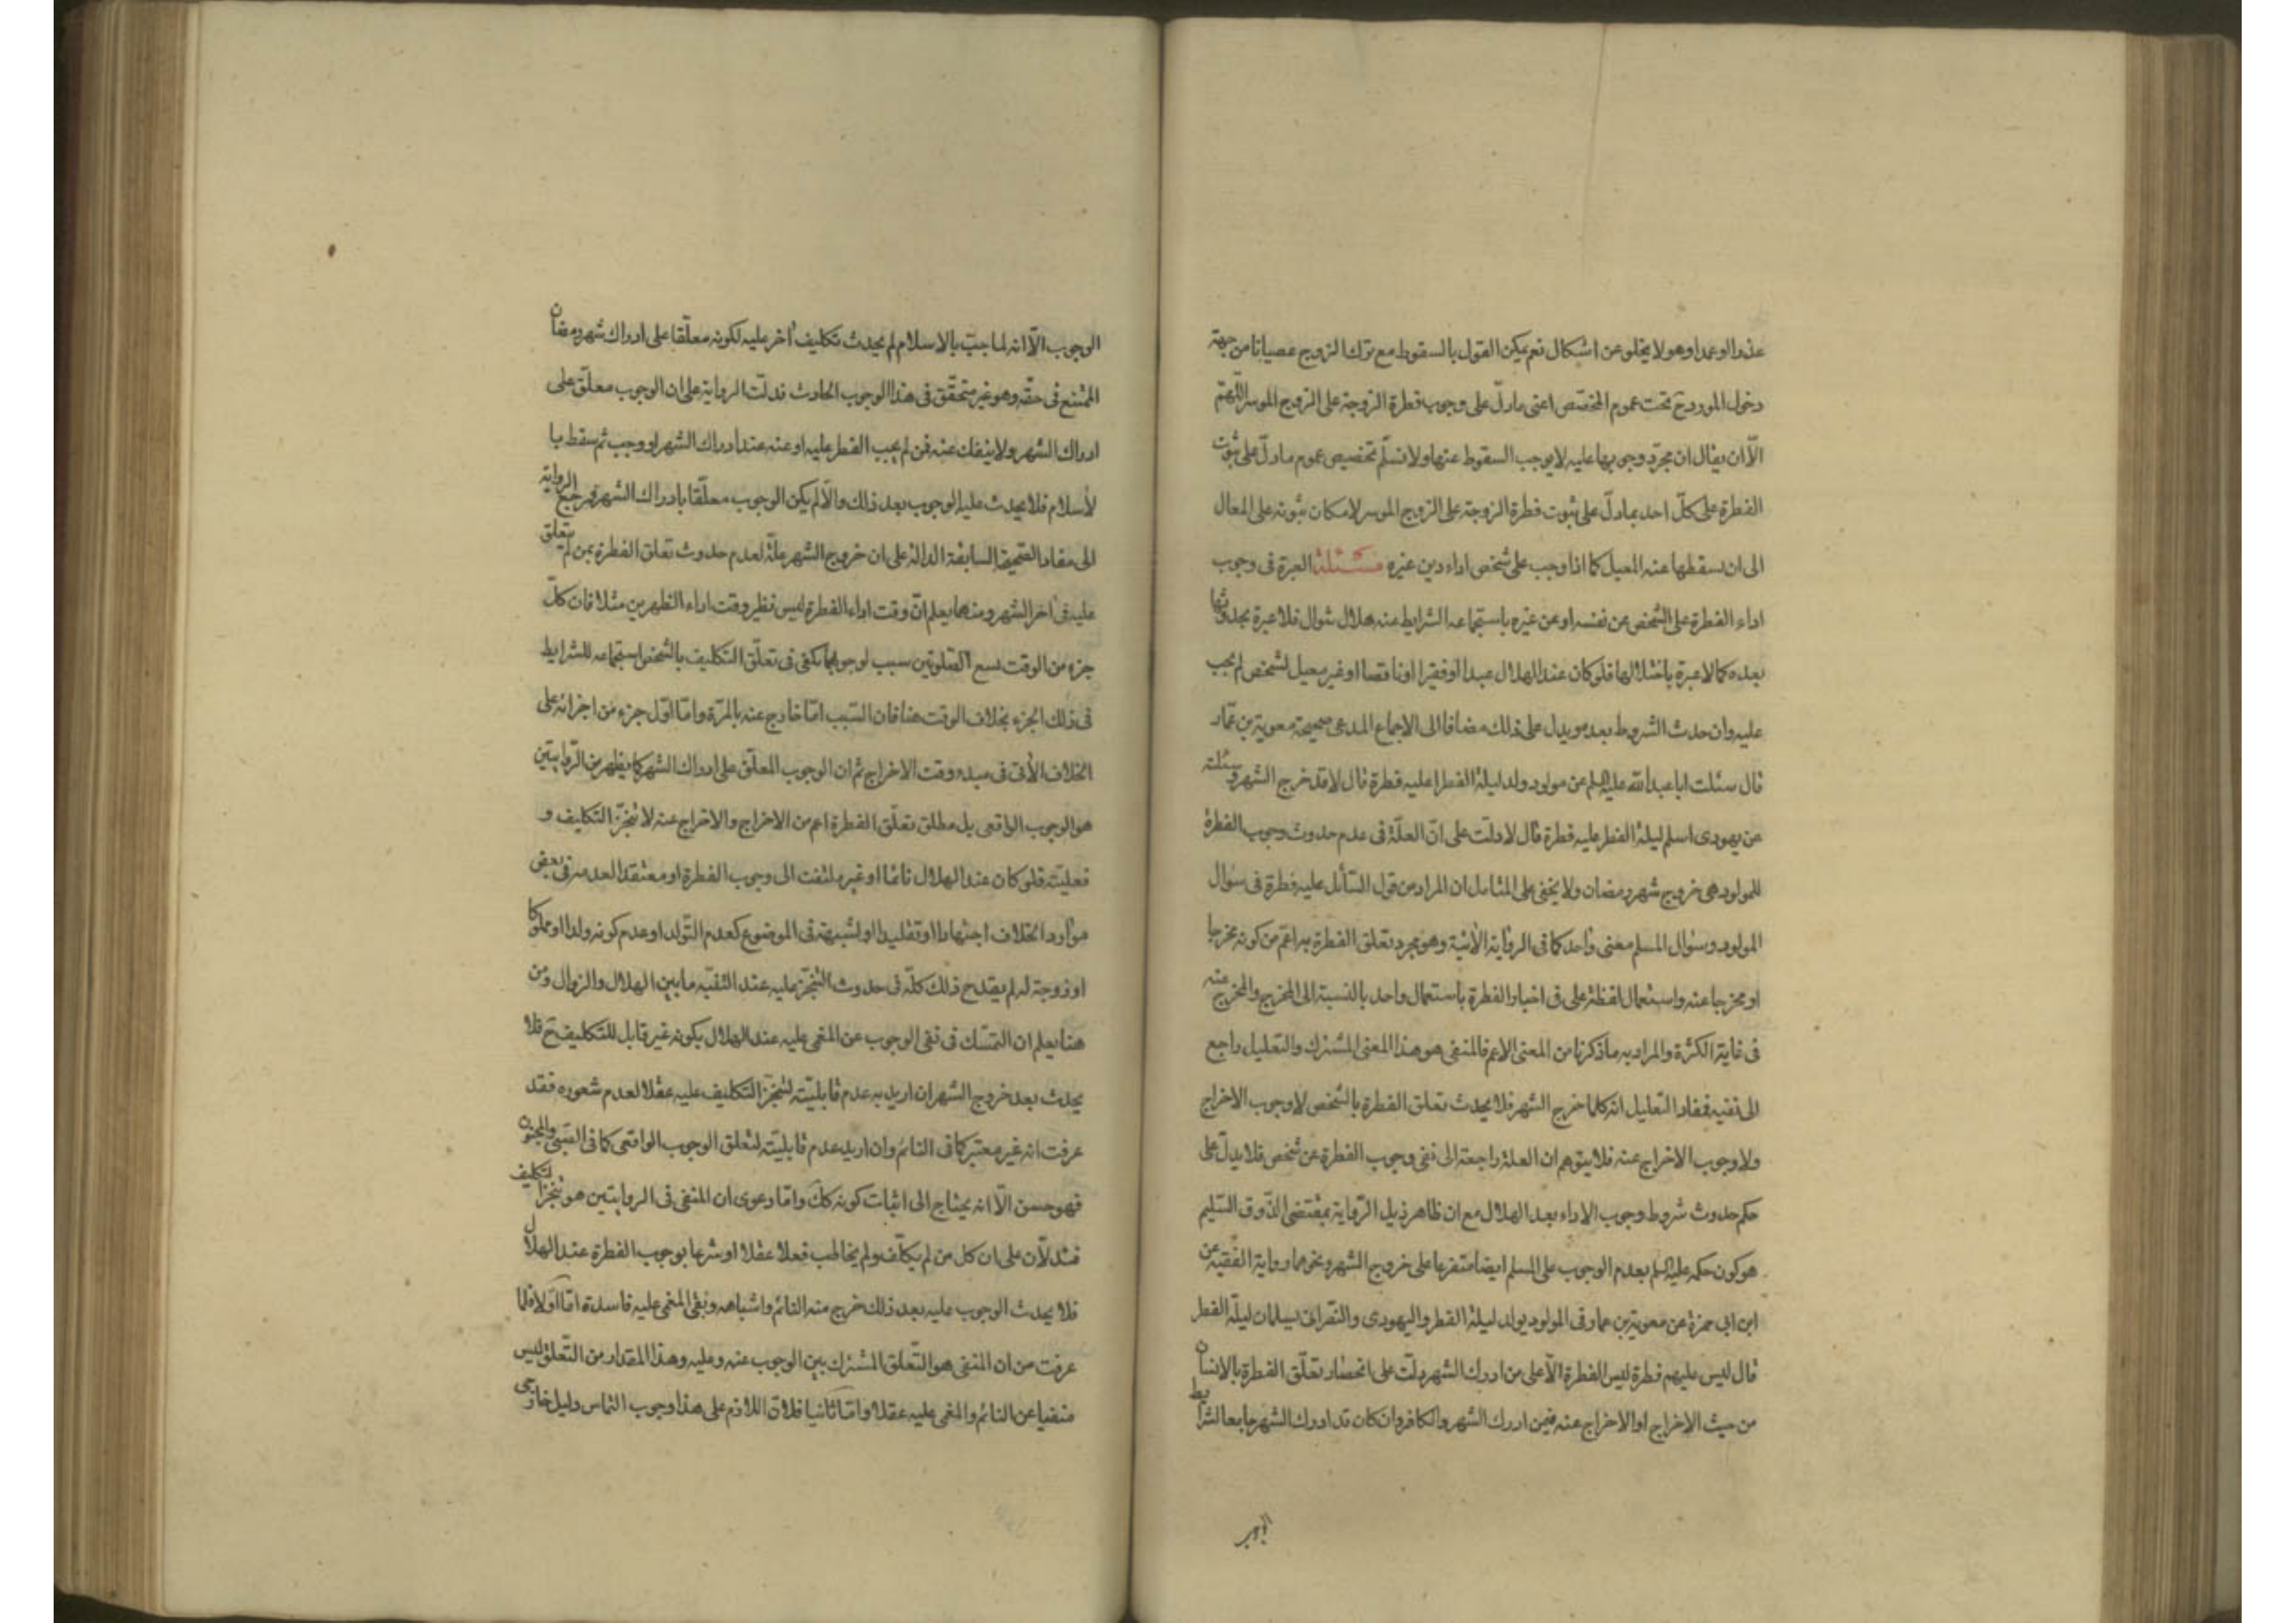 عذرا او عمدا وهو لا يخلو عن اشكال نعم يمكن القول بالسقوط مع ترك الزوج عصيانا من جهة
دخول المورد ح تحت عموم المخصص اعنى ما دلّ على وجوب فطرة الزوجة على الزوج الموسر اللّهمّ
الّا ان يقال ان مجرّد وجوبها عليه لا يوجب السقوط عنها ولا نسلّم تخصيص عموم ما دلّ على ثبوت
الفطرة على كلّ احد بما دلّ على ثبوت فطرة الزوجة على الزوج الموسر لامكان ثبوته على المعال
الى ان يسقطها عنه المعيل كما اذا وجب على شخص اداء دين غيره مسئلة العبرة فى وجوب
اداء الفطرة على الشخص عن نفسه او عن غيره باستجماعه الشرايط عند هلال شوال فلا عبرة بحدوثها
بعده كما لا عبرة باختلالها فلو كان عند الهلال عبدا او فقيرا او ناقصا او غير معيل لشخص لم يجب
عليه وان حدث الشروط بعده ويدل على ذلك مضافا الى الاجماع المدعى صحيحة معوية بن عمّار
قال سئلت ابا عبد الله عليه السلم عن مولود ولد ليلة الفطر اعليه فطرة قال لا قد خرج الشهر وسئلته
عن يهودى اسلم ليلة الفطر عليه فطرة قال لا دلّت على انّ العلّة فى عدم حدوث وجوب الفطرة
للمولود هى خروج شهر رمضان ولا يخفى على المتامل ان المراد من قول السّائل عليه فطرة فى سؤال
المولود وسؤال المسلم معنى واحد كما فى الرواية الآتية وهو مجرد تعلق الفطرة به اعمّ من كونه مخرجا
او مخرجا عنه واستعمال لفظة على فى اخبار الفطرة باستعمال واحد بالنسبة الى المخرج والمخرج عنه
فى غاية الكثرة والمراد به ما ذكرنا من المعنى الاعم فالمنفى هو هذا المعنى المشترك والتعليل راجع
الى نفيه فمفاد التعليل انه كلما خرج الشهر فلا يحدث تعلق الفطرة بالشخص لا وجوب الاخراج
ولا وجوب الاخراج عنه فلا يتوهم ان العلة راجعة الى نفى وجوب الفطرة عن شخص فلا يدلّ على
حكم حدوث شروط وجوب الاداء بعد الهلال مع ان ظاهر ذيل الرّواية بمقتضى الذّوق السّليم
هو كون حكمه عليه السلم بعدم الوجوب على المسلم ايضا متفرعا على خروج الشهر ونحوهما رواية الفقيه عن
ابن ابى حمزة عن معوية بن عمار فى المولود يولد ليلة الفطر واليهودى والنّصرانى يسلمان ليلة الفطر
قال ليس عليهم فطرة ليس الفطرة الّا على من ادرك الشهر دلّت على انحصار تعلّق الفطرة بالانسان
من حيث الاخراج او الاخراج عنه فيمن ادرك الشهر والكافر وان كان قد ادرك الشهر جامعا لشرايط
الوجوب الّا انه لما جبّ بالاسلام لم يحدث تكليف آخر عليه لكونه معلّقا على ادراك شهر رمضان
الممتنع فى حقّه وهو غير متحقّق فى هذا الوجوب الحادث فدلّت الرواية على ان الوجوب معلّق على
ادراك الشهر ولا ينفك عنه فمن لم يجب الفطر عليه او عنه عند ادراك الشهر او وجب ثم سقط با
لأسلام فلا يحدث عليه الوجوب بعد ذلك والّا لم يكن الوجوب معلّقا بادراك الشهر فمرجع الرواية
الى مفاد الصّحيحة السابقة الدالة على ان خروج الشهر علّة لعدم حدوث تعلق الفطرة بمن لم يتعلق
عليه فى آخر الشهر ومنهما يعلم انّ وقت اداء الفطرة ليس نظير وقت اداء الظهرين مثلا فان كلّ
جزء من الوقت يسع الصّلوتين سبب لوجوبهما يكفى فى تعلّق التكليف بالشخص استجماعه للشرايط
فى ذلك الجزء بخلاف الوقت هنا فان السّبب امّا خارج عنه بالمرّة وامّا اوّل جزء من اجزائه على
الخلاف الآتى فى مبدء وقت الاخراج ثم ان الوجوب المعلّق على ادراك الشهر كما يظهر من الرّوايتين
هو الوجوب الواقعى بل مطلق تعلّق الفطرة اعم من الاخراج والاخراج عنه لا تنجّز التكليف و
فعليّته فلو كان عند الهلال نائما او غير ملتفت الى وجوب الفطرة او معتقدا لعدمه فى بعض
موارد الخلاف اجتهادا او تقليدا او لشبهة فى الموضوع كعدم التّولد او عدم كونه ولدا او مملوكا
او زوجة له لم يقدح ذلك كلّه فى حدوث التّنجّز عليه عند التّنبّه ما بين الهلال والزوال ومن
هنا يعلم ان التمسّك فى نفى الوجوب عن المغمى عليه عند الهلال بكونه غير قابل للتّكليف ح فلا
يحدث بعد خروج الشهر ان اريد به عدم قابليّته لتنجّز التكليف عليه عقلا لعدم شعوره فقد
عرفت انه غير معتبر كما فى النائم وان اريد عدم قابليّته لتعلق الوجوب الواقعى كما فى الصّبى والمجنون
فهو حسن الّا انه يحتاج الى اثبات كونه كك وامّا دعوى ان المنفى فى الروايتين هو تنجز التكليف
فتدلّان على ان كل من لم يكلّف ولم يخاطب فعلا عقلا او شرعا بوجوب الفطرة عند الهلال
فلا يحدث الوجوب عليه بعد ذلك خرج منه النائم واشباهه وبقى المغمى عليه فاسدة امّا اوّلا فلما
عرفت من ان المنفى هو التّعلق المشترك بين الوجوب عنه وعليه وهذا المقدار من التّعلق ليس
منفيا عن النائم والمغمى عليه عقلا وامّا ثانيا فلانّ اللازم على هذا وجوب التماس دليل خارجى